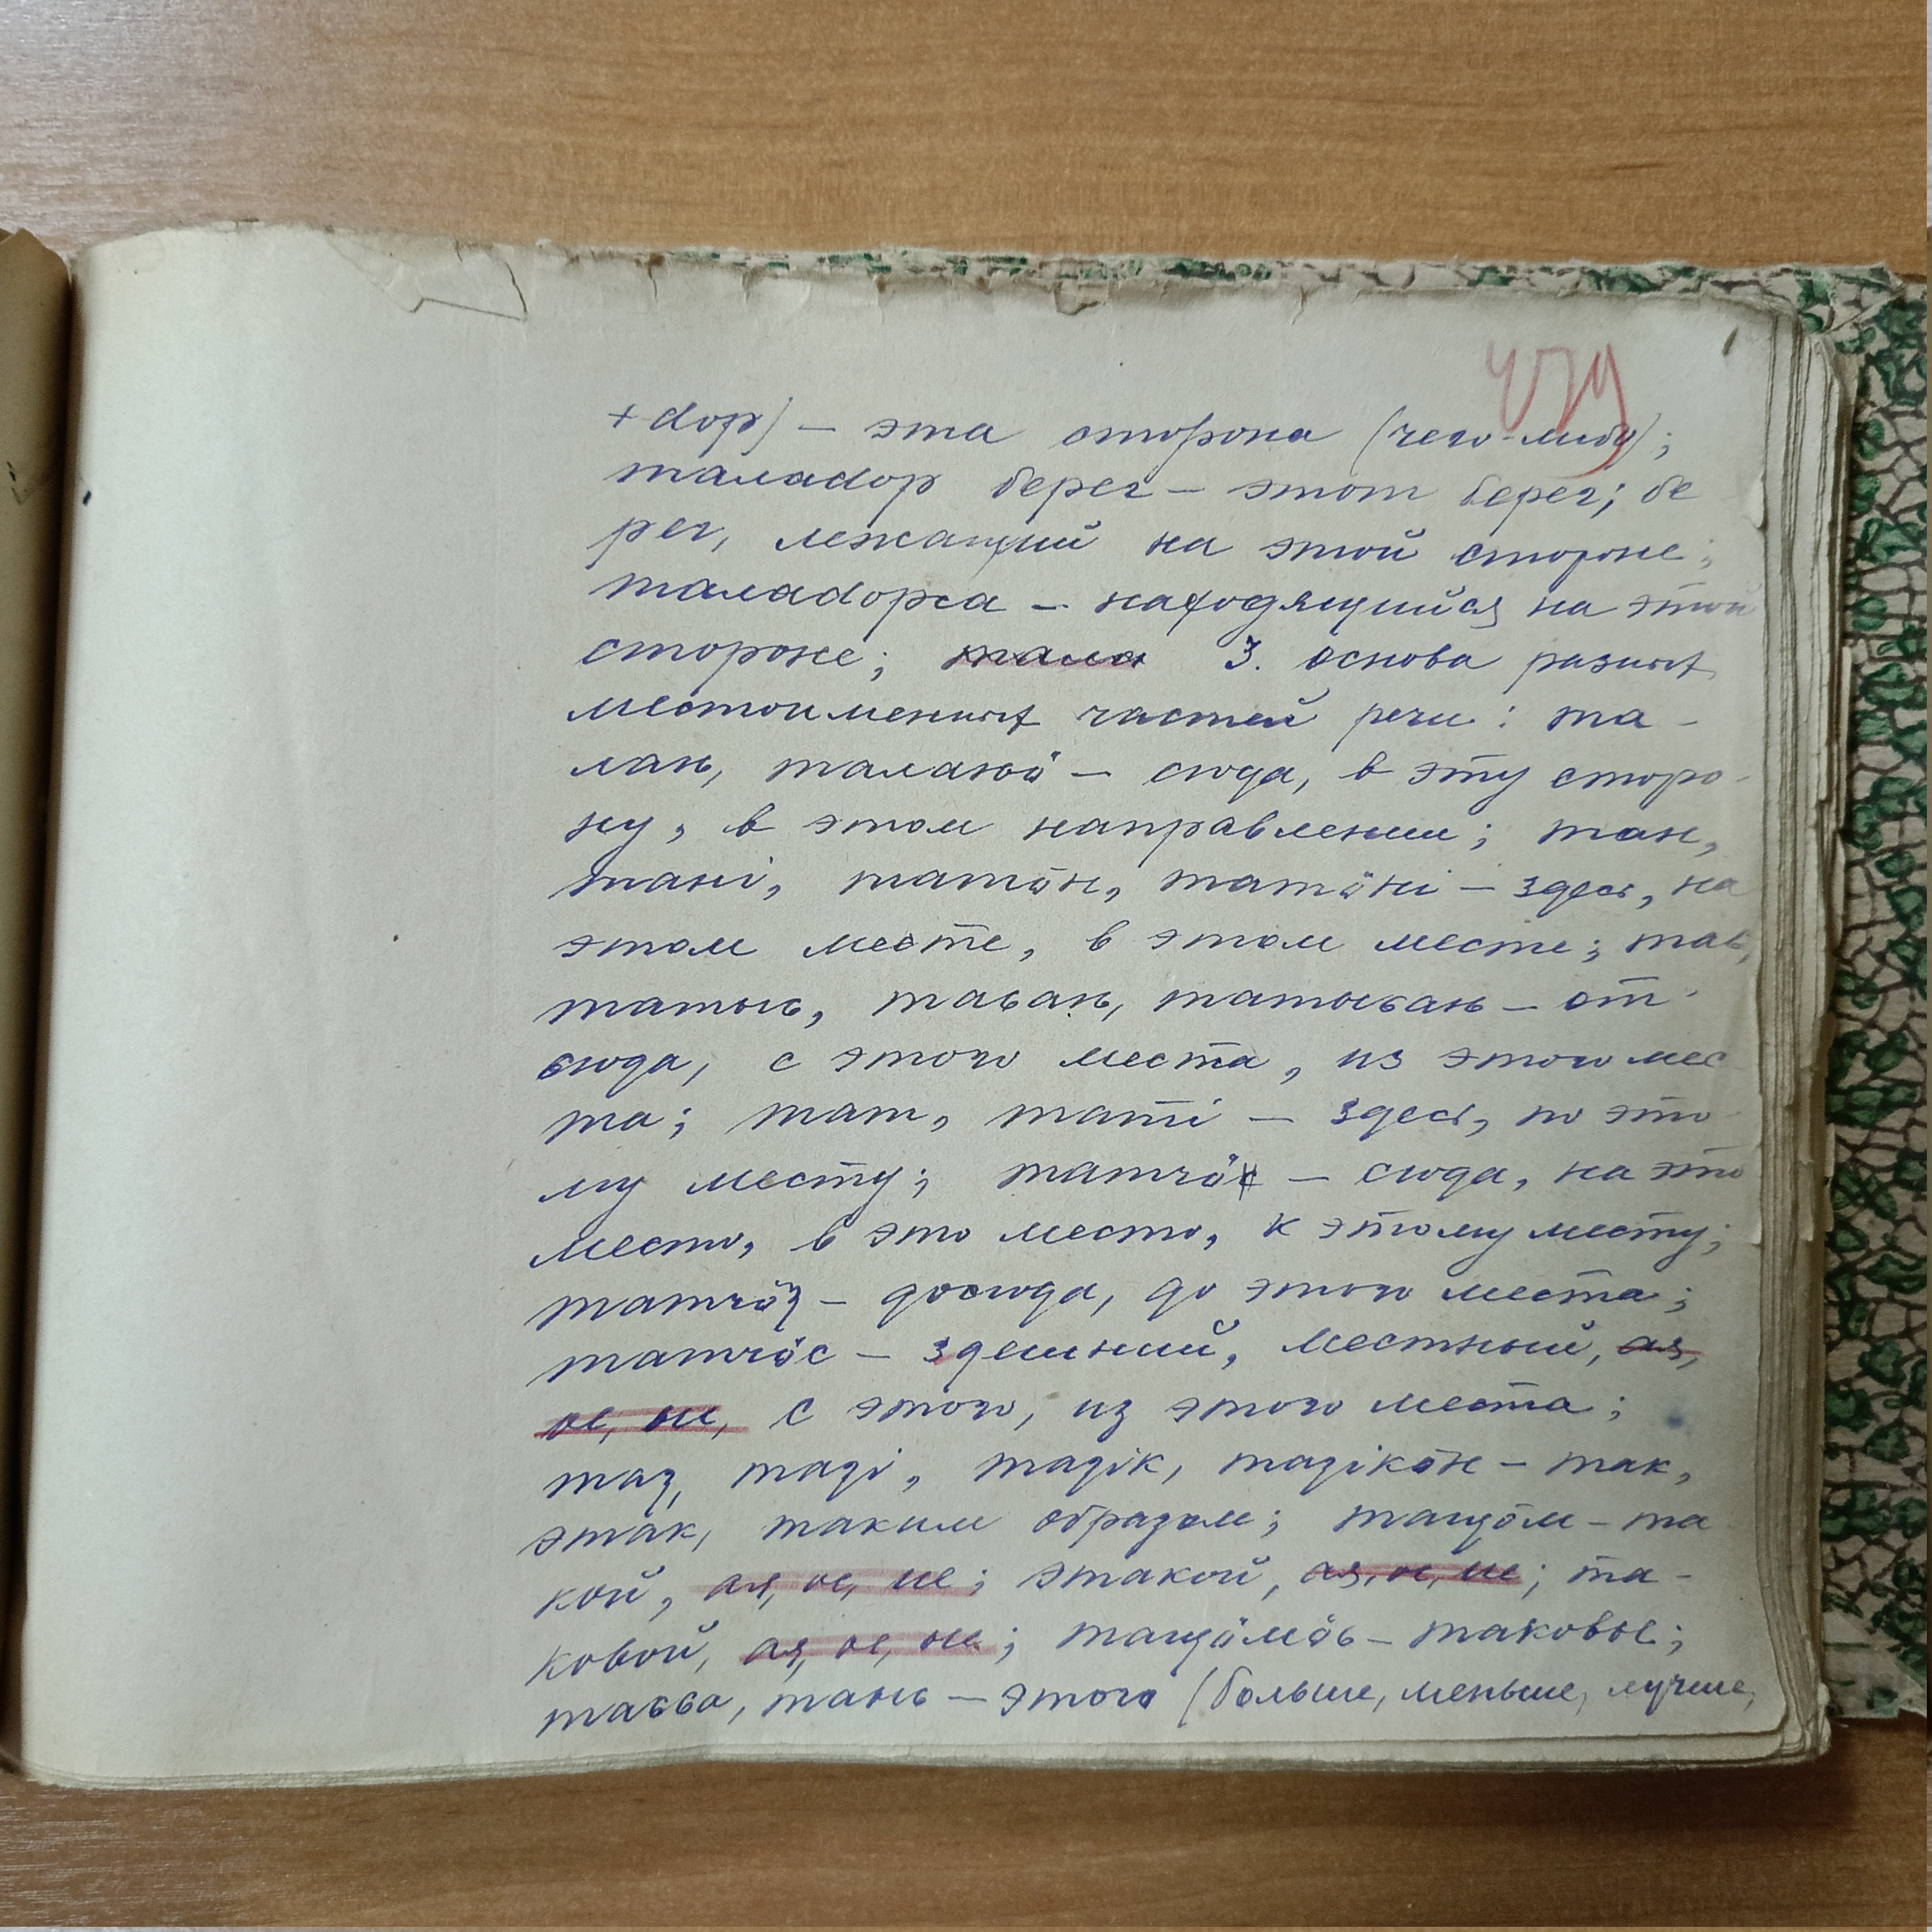 439
+dор) – эта сторона (чего-либо);
талаdор берег – этот берег; бе
рег, лежащий на этой стороне;
талаdорса – находящийся на этой
стороне; тала 3. основа разных
местоименных частей речи: та-
лаԋ, талаԋö – сюда, в эту сторо-
ну, в этом направлении; тан,
тані, татöн, татöні – здесь, на
этом месте, в этом месте; таԍ,
татыԍ, таԍаԋ, татыԍаԋ – от-
сюда, с этого места, из этого мес
та; тат, таті – здесь, по это-
му месту; татчö – сюда, на это
место, в это место, к этому месту;
татчöԇ – досюда, до этого места;
татчöс – здешний, местный, ая,
ое, ые, с этого, из этого места;
таԇ, таԇі, таԇік, таԇікöн – так,
этак, таким образом; тащöм – та
кой, ая, ое, ие; этакой, ая, ое, ие; та-
ковой, ая, ое, ые; тащöмöԍ – таковы;
таԍԍа, таыԍ – этого (больше, меньше, лучше,